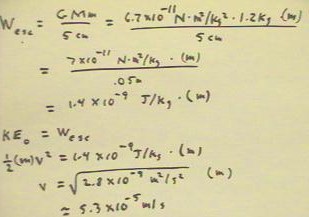 W_esc = GMm / 5 cm = 6.7×10⁻¹¹ N·m²/kg² · 1.2kg (m) / 5 cm
= 7×10⁻¹¹ N·m²/kg · (m) / .05m
= 1.4 ×10⁻⁹ J/kg · (m)
KE₀ = W_esc
½(m)v² = 1.4 ×10⁻⁹ J/kg · (m)
v = √2.8×10⁻⁹ m²/s² (m)
≈ 5.3×10⁻⁵ m/s